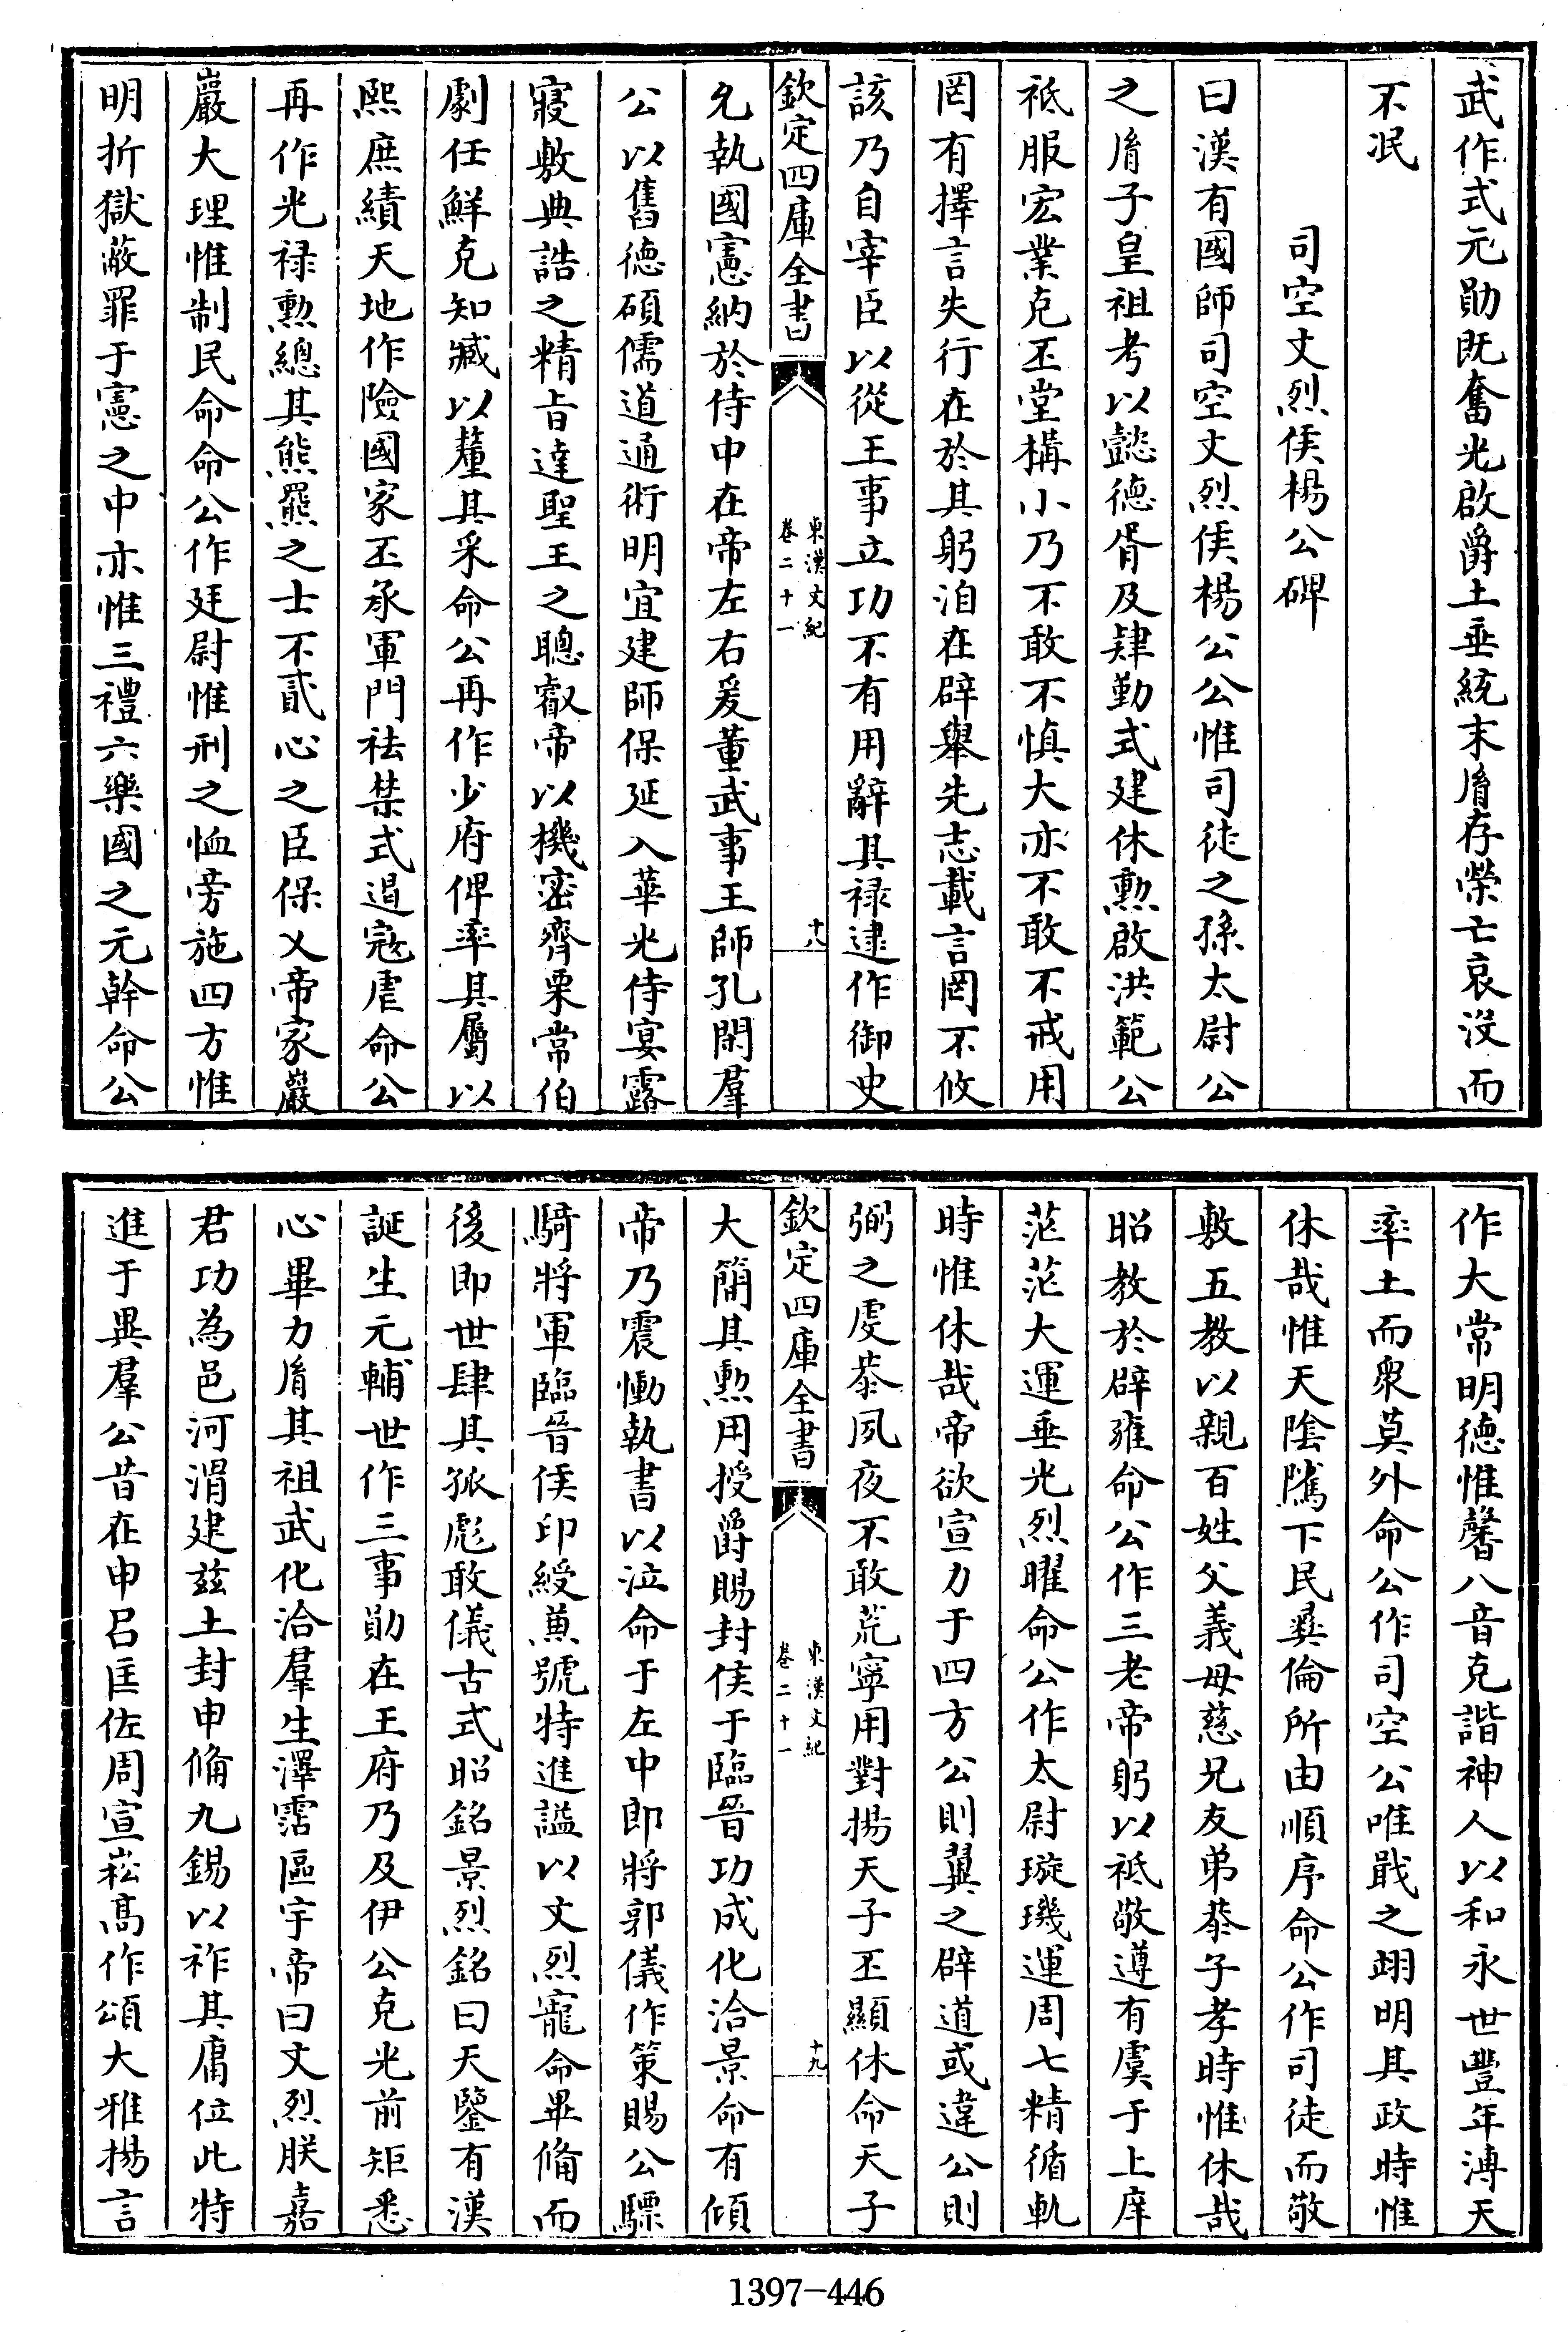 武作式元勛既奮光啟爵土垂統末胤存榮亡哀沒而
不泯
司空文烈侯楊公碑
曰漢有國師司空文烈侯楊公公惟司徒之孫太尉公
之胤子皇祖考以懿德胥及肄勤式建休勲啟洪範公
祗服宏業克丕堂構小乃不敢不慎大亦不敢不戒用
罔有擇言失行在於其躬洎在辟舉先志載言罔不攸
該乃自宰臣以從王事立功不有用辭其祿逮作御史
欽定四庫全書
東漢文紀
卷二十一
十八
允執國憲納於侍中在帝左右爰董武事王師孔閑羣
公以舊德碩儒道通術明宜建師保延入華光侍宴露
寢敷典誥之精旨達聖王之聰叡帝以機密齊栗常伯
劇任鮮克知臧以釐其采命公再作少府俾率其屬以
熙庶績天地作險國家丕承軍門祛禁式遏寇虐命公
再作光祿勲總其熊羆之士不貳心之臣保乂帝家巖
巖大理惟制民命命公作廷尉惟刑之恤旁施四方惟
明折獄蔽罪于憲之中亦惟三禮六樂國之元幹命公
作大常明德惟馨八音克諧神人以和永世豐年溥天
率土而衆莫外命公作司空公唯戢之翊明其政時惟
休哉惟天陰隲下民彝倫所由順序命公作司徒而敬
敷五教以親百姓父義母慈兄友弟恭子孝時惟休哉
昭教於辟雍命公作三老帝躬以祗敬遵有虞于上庠
茫茫大運垂光烈曜命公作太尉璇璣運周七精循軌
時惟休哉帝欲宣力于四方公則翼之辟道或違公則
弼之虔恭夙夜不敢荒寧用對揚天子丕顯休命天子
欽定四庫全書
東漢文紀
卷二十一
十九
大簡其勲用授爵賜封侯于臨晉功成化洽景命有傾
帝乃震慟執書以泣命于左中郎將郭儀作策賜公驃
騎將軍臨晉侯印綬兼號特進謚以文烈寵命畢備而
後即世肆其孤彪敢儀古式昭銘景烈銘曰天鑒有漢
誕生元輔世作三事勛在王府乃及伊公克光前矩悉
心畢力胤其祖武化洽羣生澤霑區宇帝曰文烈朕嘉
君功為邑河渭建兹土封申備九錫以祚其庸位此特
進于異羣公昔在申呂匡佐周宣崧高作頌大雅揚言
1397-446